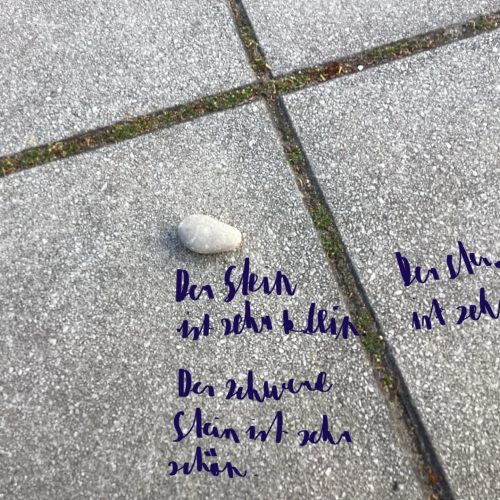 Der Stein
ist sehr klein
Der schwere
Stein ist sehr
schön.
Der
ist sehr